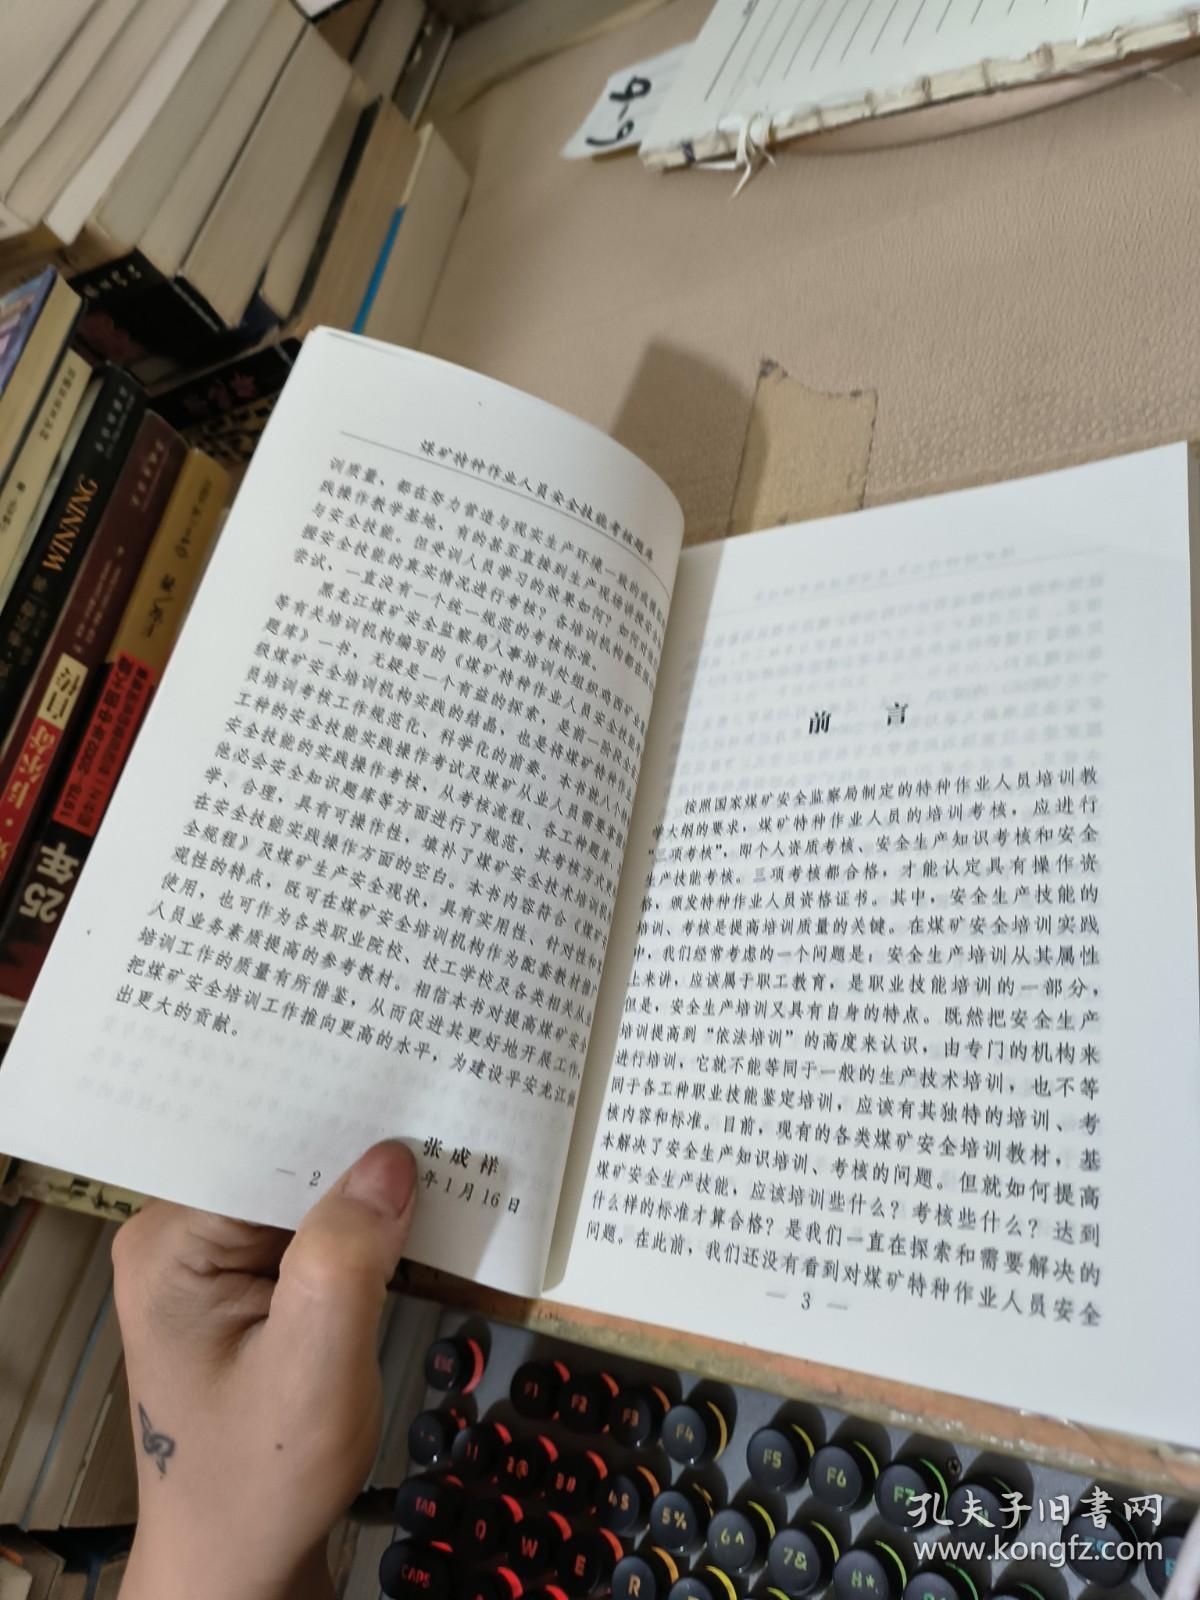 煤矿特种作业人员安全技能考核题库
训质量，都在努力营造与现实生产环境一致的或模拟
践操作教学基地，有的甚至直接到生产现场讲授安全
与安全技能。但受训人员学习的效果如何？如何对
握安全技能的真实情况进行考核？各培训机构都在
尝试，一直没有一个统一规范的考核标准。
黑龙江煤矿安全监察局人事培训处组织鸡西矿业
等有关培训机构编写的《煤矿特种作业人员安全技能考
题库》一书，无疑是一个有益的探索，是前一阶段全
级煤矿安全培训机构实践的结晶，也是将煤矿特种作业
员培训考核工作规范化、科学化的前奏。本书就八个
工种的安全技能实践操作考试及煤矿从业人员需要掌
安全技能的实践操作考核，从考核流程、各工种题库、
他必会安全知识题库等方面进行了规范，其考核方式更
学、合理，具有可操作性，填补了煤矿安全技术培训机
在安全技能实践操作方面的空白。本书内容符合《煤矿
全规程》及煤矿生产安全现状，具有实用性、针对性和
观性的特点，既可在煤矿安全培训机构作为配套教材推广
使用，也可作为各类职业院校、技工学校及各类相关从
人员业务素质提高的参考教材。相信本书对提高煤矿安全
培训工作的质量有所借鉴，从而促进其更好地开展工作，
把煤矿安全培训工作推向更高的水平，为建设平安龙江
出更大的贡献。
张成祥
年1月16日
— 2
前 言
按照国家煤矿安全监察局制定的特种作业人员培训教
学大纲的要求，煤矿特种作业人员的培训考核，应进行
“三项考核”，即个人资质考核、安全生产知识考核和安全
生产技能考核。三项考核都合格，才能认定具有操作资
格，颁发特种作业人员资格证书。其中，安全生产技能的
培训、考核是提高培训质量的关键。在煤矿安全培训实践
中，我们经常考虑的一个问题是：安全生产培训从其属性
上来讲，应该属于职工教育，是职业技能培训的一部分，
但是，安全生产培训又具有自身的特点。既然把安全生产
培训提高到“依法培训”的高度来认识，由专门的机构来
进行培训，它就不能等同于一般的生产技术培训，也不等
同于各工种职业技能鉴定培训，应该有其独特的培训、考
核内容和标准。目前，现有的各类煤矿安全培训教材，基
本解决了安全生产知识培训、考核的问题。但就如何提高
煤矿安全生产技能，应该培训些什么？考核些什么？达到
什么样的标准才算合格？是我们一直在探索和需要解决的
问题。在此前，我们还没有看到对煤矿特种作业人员安全
— 3 —
9-9
WINNING
25年
1978-2002年中国大事
ESC
F1
F2
F3
F4
F5
F6
F7
2@
4$
5%
6^
7&
8*
TAB
Q
W
E
R
CAPS
孔夫子旧書网
www.kongfz.com